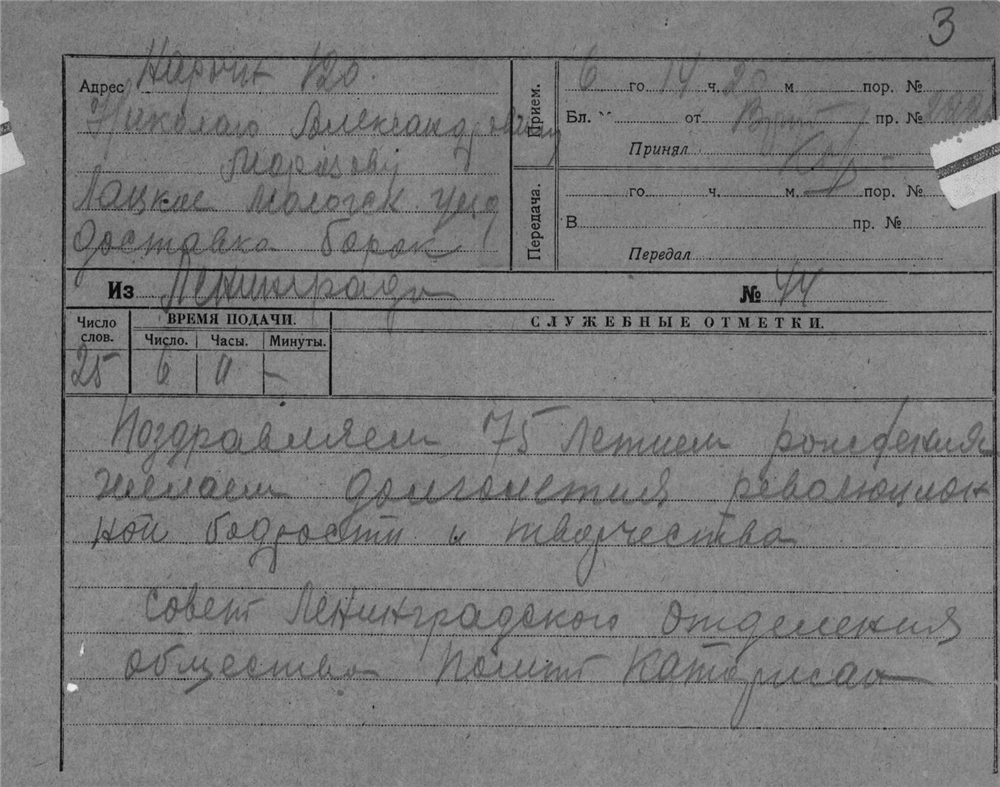 3
Адрес Нарочн 120
Николаю Александровичу
Морозову
Лацкое Мологск уезд
доставка борок
Прием. 6 го 14 ч. 20 м пор. №
Бл. от пр. №
Принял
Передача. го ч. м. пор. №
В пр. №
Передал
Из Ленинграда № 44
Число слов. ВРЕМЯ ПОДАЧИ. СЛУЖЕБНЫЕ ОТМЕТКИ.
Число. Часы. Минуты.
25 6 11 —
Поздравляем 75 летием рождения
желаем долголетия революцион
ной бодрости и творчества
Совет Ленинградского отделения
общества Полит Каторжан